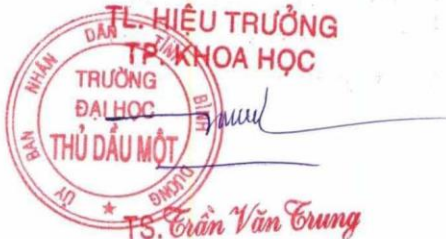 TL. HIỆU TRƯỞNG
TP. KHOA HỌC
ỦY BAN NHÂN DÂN TỈNH BÌNH DƯƠNG
TRƯỜNG
ĐẠI HỌC
THỦ DẦU MỘT
TS. Trần Văn Trung